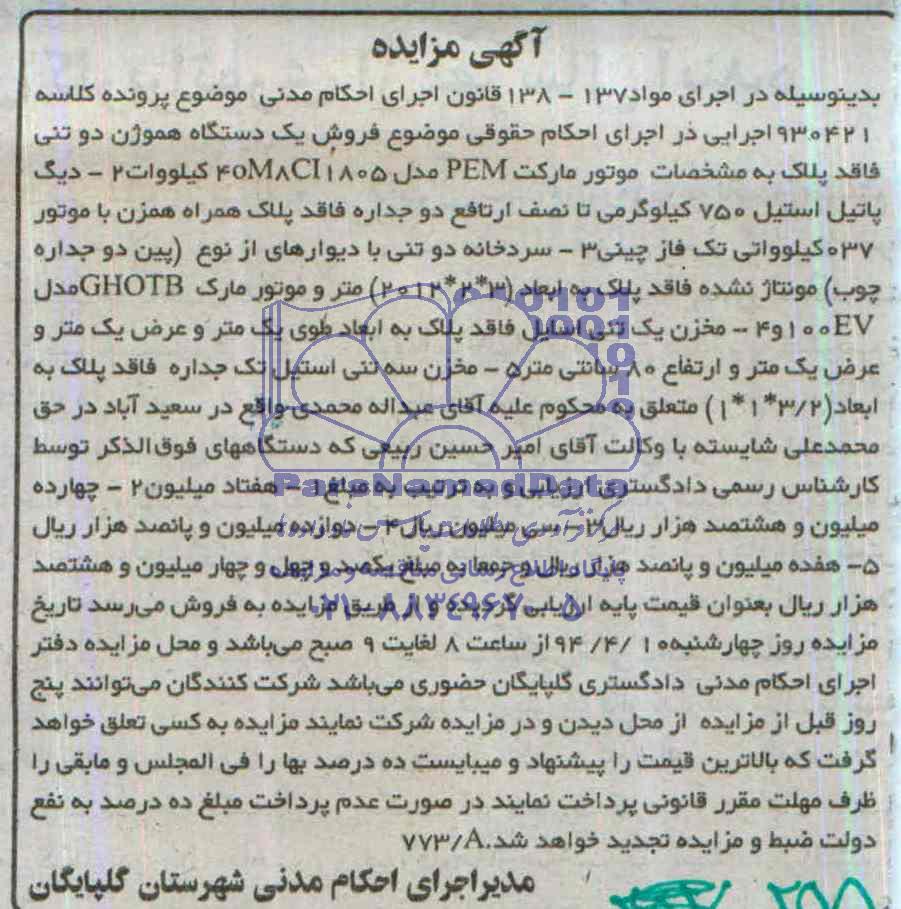 آگهی مزایده
بدینوسیله در اجرای مواد۱۳۷ – ۱۳۸ قانون اجرای احکام مدنی موضوع پرونده کلاسه
۹۳۰۴۲۱ اجرایی در اجرای احکام حقوقی موضوع فروش یک دستگاه هموژن دو تنی
فاقد پلاک به مشخصات موتور مارکت PEM مدل ۴۰M۸CI۱۸۰۵ کیلووات۲ – دیگ
پاتیل استیل ۷۵۰ کیلوگرمی تا نصف ارتافع دو جداره فاقد پلاک همراه همزن با موتور
۰۳۷کیلوواتی تک فاز چینی۳ – سردخانه دو تنی با دیوارهای از نوع (پین دو جداره
چوب) مونتاژ نشده فاقد پلاک به ابعاد (۳*۲*۲۰۱۲) متر و موتور مارک GHOTBمدل
۱۰۰EV و۴ – مخزن یک تنی اسایل فاقد پلاک به ابعاد طوی یک متر و عرض یک متر و
عرض یک متر و ارتفاع ۸۰ سانتی متر۵ – مخزن سه تنی استیل تک جداره فاقد پلاک به
ابعاد(۳/۲*۱*۱) متعلق به محکوم علیه آقای عبداله محمدی واقع در سعید آباد در حق
محمدعلی شایسته با وکالت آقای امیر حسین ربیعی که دستگاههای فوق‌الذکر توسط
کارشناس رسمی دادگستری ارزیابی و به ترتیب به مبلغ۱ – هفتاد میلیون۲ – چهارده
میلیون و هشتصد هزار ریال۳ – سی میلیون ریال۴ – دوازده میلیون و پانصد هزار ریال
۵– هفده میلیون و پانصد هزار ریال و جمعا به مبلغ یکصد و چهل و چهار میلیون و هشتصد
هزار ریال بعنوان قیمت پایه ارزیابی گردیده و از طریق مزایده به فروش می‌رسد تاریخ
مزایده روز چهارشنبه۱۰ /۴/ ۹۴ از ساعت ۸ لغایت ۹ صبح می‌باشد و محل مزایده دفتر
اجرای احکام مدنی دادگستری گلپایگان حضوری می‌باشد شرکت کنندگان می‌توانند پنج
روز قبل از مزایده از محل دیدن و در مزایده شرکت نمایند مزایده به کسی تعلق خواهد
گرفت که بالاترین قیمت را پیشنهاد و میبایست ده درصد بها را فی المجلس و مابقی را
ظرف مهلت مقرر قانونی پرداخت نمایند در صورت عدم پرداخت مبلغ ده درصد به نفع
دولت ضبط و مزایده تجدید خواهد شد.۷۷۳/A
مدیراجرای احکام مدنی شهرستان گلپایگان
ParsNamadData
پایگاه اطلاع رسانی مناقصه و مزایده
۰۲۱-۸۸۳۴۹۶۷۰-۵